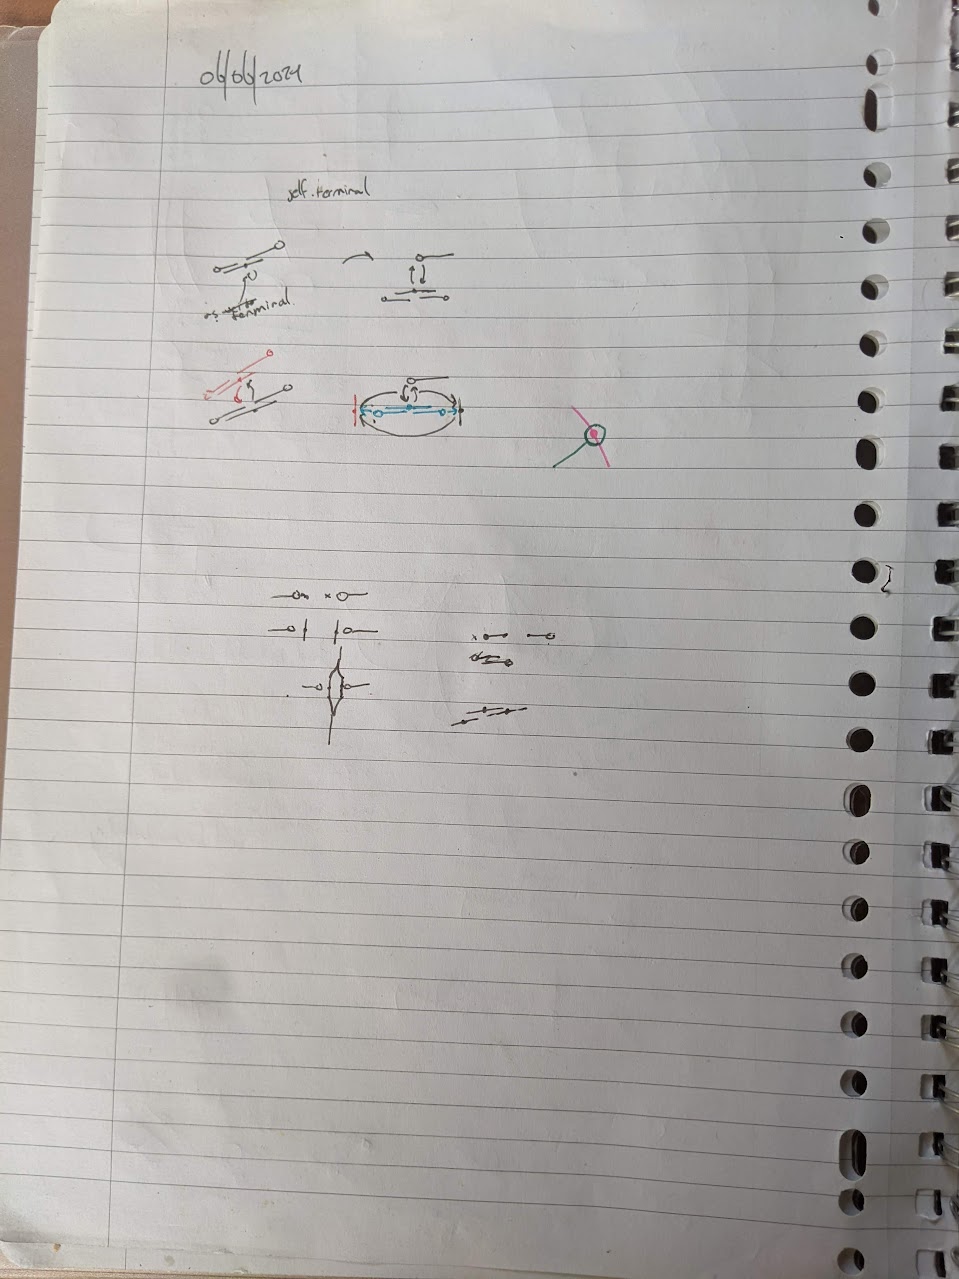 06/06/2024
self.terminal
as
terminal.